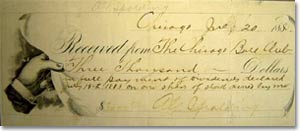 A G Spalding
Chicago July 20 188
Received from The Chicago Ball Club
Three Thousand Dollars
in full payment of dividends declared
July 18th 1888 on one share of stock owned by me
$3000.00 A G Spalding